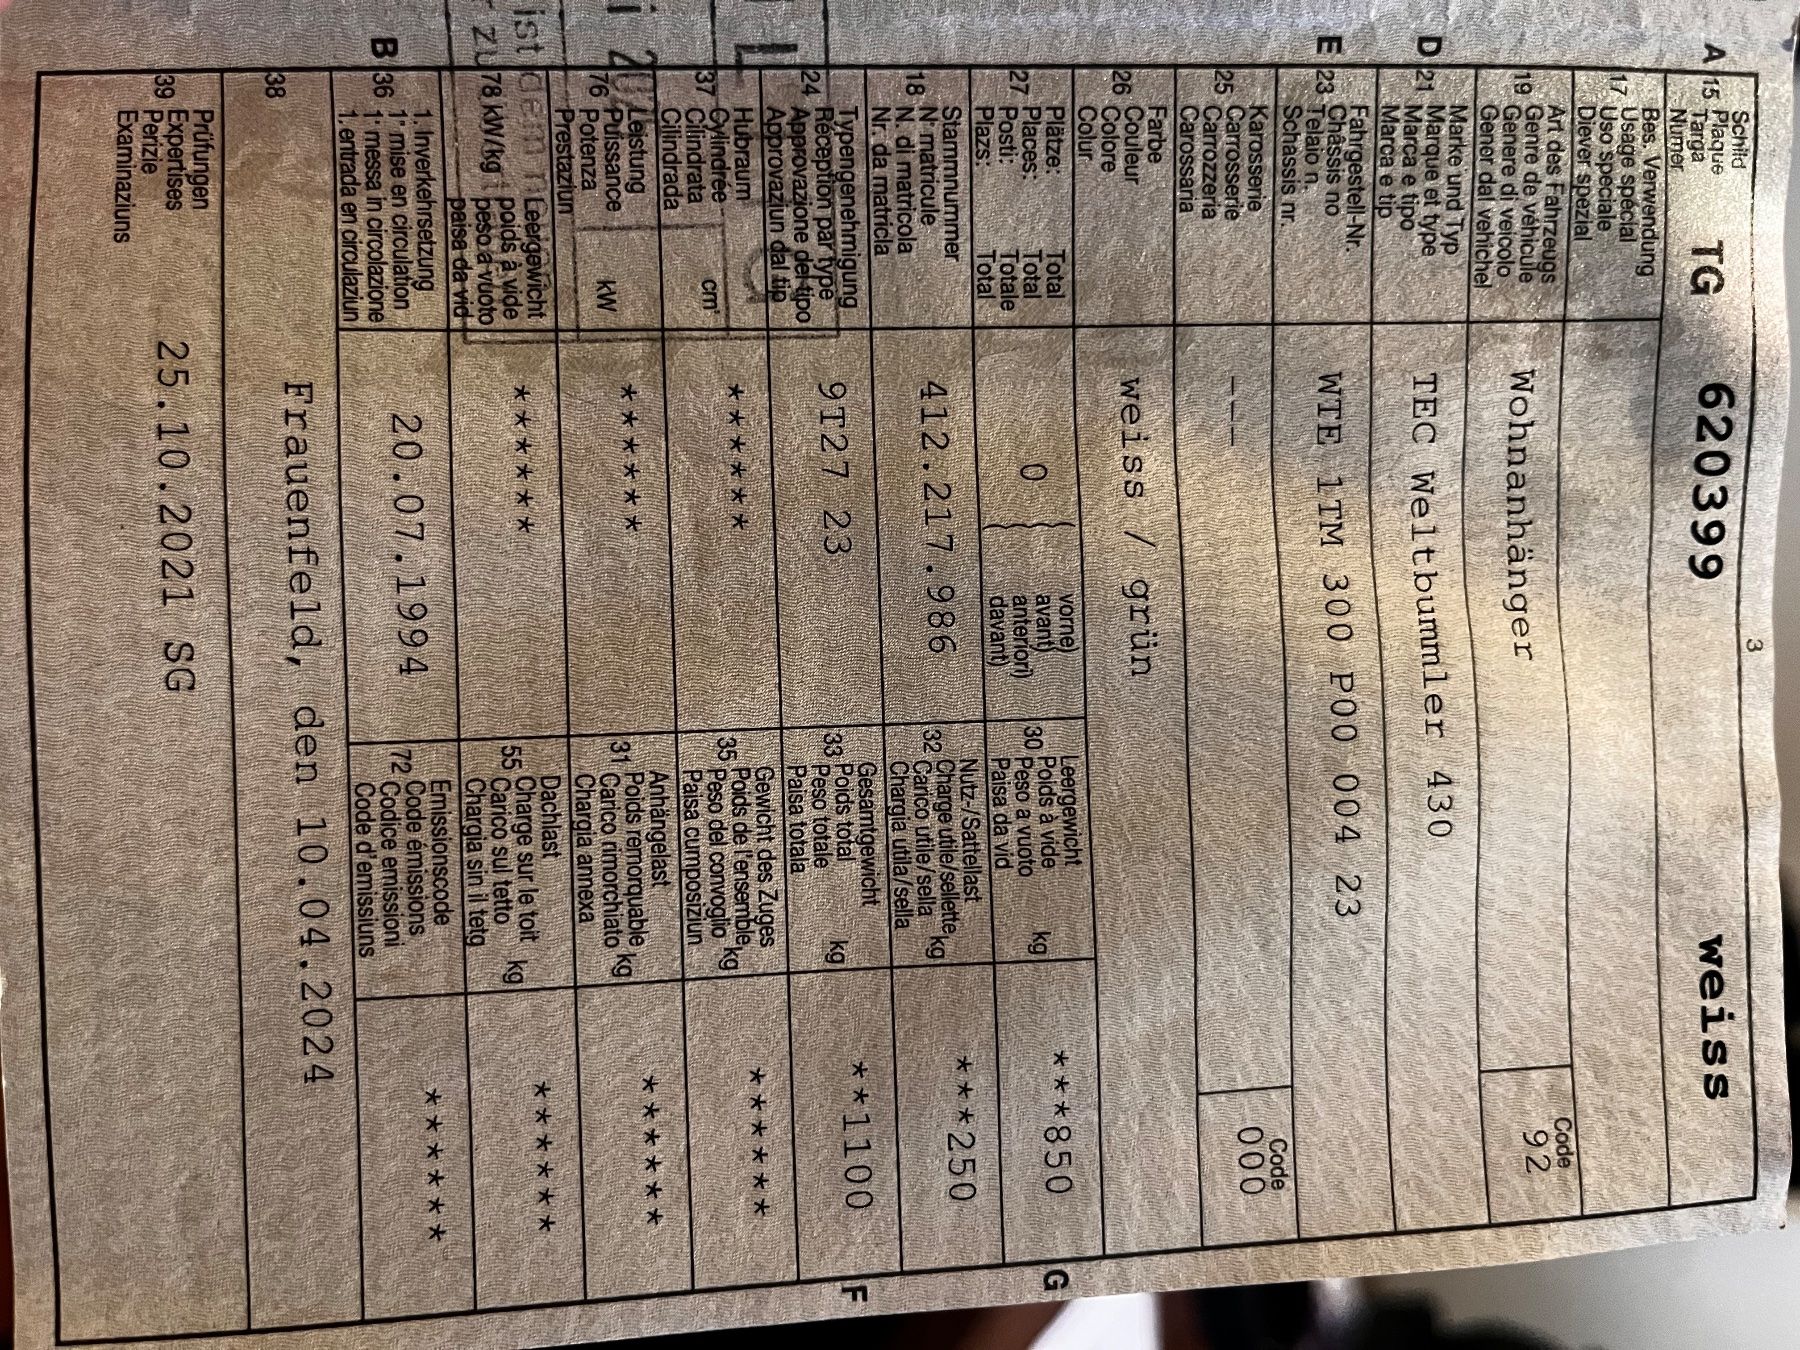 3
Schild
Plaque
Targa
Numer
A 15 TG 620399 weiss
Bes. Verwendung
17 Usage spécial
Uso speciale
Diever spezial
Art des Fahrzeugs
19 Genre de véhicule
Genere di veicolo
Gener dal vehichel
Wohnanhänger
Code
92
Marke und Typ
D 21 Marque et type
Marca e tipo
Marca e tip
TEC Weltbummler 430
Fahrgestell-Nr.
E 23 Châssis no
Telaio n.
Schassis nr.
WTE 1TM 300 P00 004 23
Karosserie
25 Carrosserie
Carrozzeria
Carossaria
---
Code
000
Farbe
26 Couleur
Colore
Colur
weiss / grün
Plätze: Total
27 Places: Total
Posti: Totale
Plazs: Total
0
vorne)
avant)
anteriori)
davant)
Leergewicht
30 Poids à vide
Peso a vuoto kg
Paisa da vid
***850 G
Stammnummer
18 N° matricule
N. di matricola
Nr. da matricla
412.217.986
Nutz-/Sattellast
32 Charge utile/sellette kg
Carico utile/sella
Chargia utila/sella
***250
Typengenehmigung
24 Réception par type
Approvazione del tipo
Approvaziun dal tip
9T27 23
Gesamtgewicht
33 Poids total kg
Peso totale
Paisa totala
**1100 F
Hubraum
37 Cylindrée
Cilindrata cm³
Cilindrada
******
Gewicht des Zuges
35 Poids de l'ensemble kg
Peso del convoglio
Paisa cumposiziun
******
Leistung
76 Puissance kW
Potenza
Prestaziun
******
Anhängelast
31 Poids remorquable kg
Carico rimorchiato
Chargia annexa
******
78 kW/kg
Leergewicht
poids à vide
peso a vuoto
paisa da vid
******
Dachlast
55 Charge sur le toit kg
Carico sul tetto
Chargia sin il tetg
******
1. Inverkehrsetzung
B 36 1re mise en circulation
1a messa in circolazione
1. entrada en circulaziun
20.07.1994
Emissionscode
72 Code émissions
Codice emissioni
Code d'emissiuns
******
38 Frauenfeld, den 10.04.2024
Prüfungen
39 Expertises
Perizie
Examinaziuns
25.10.2021 SG